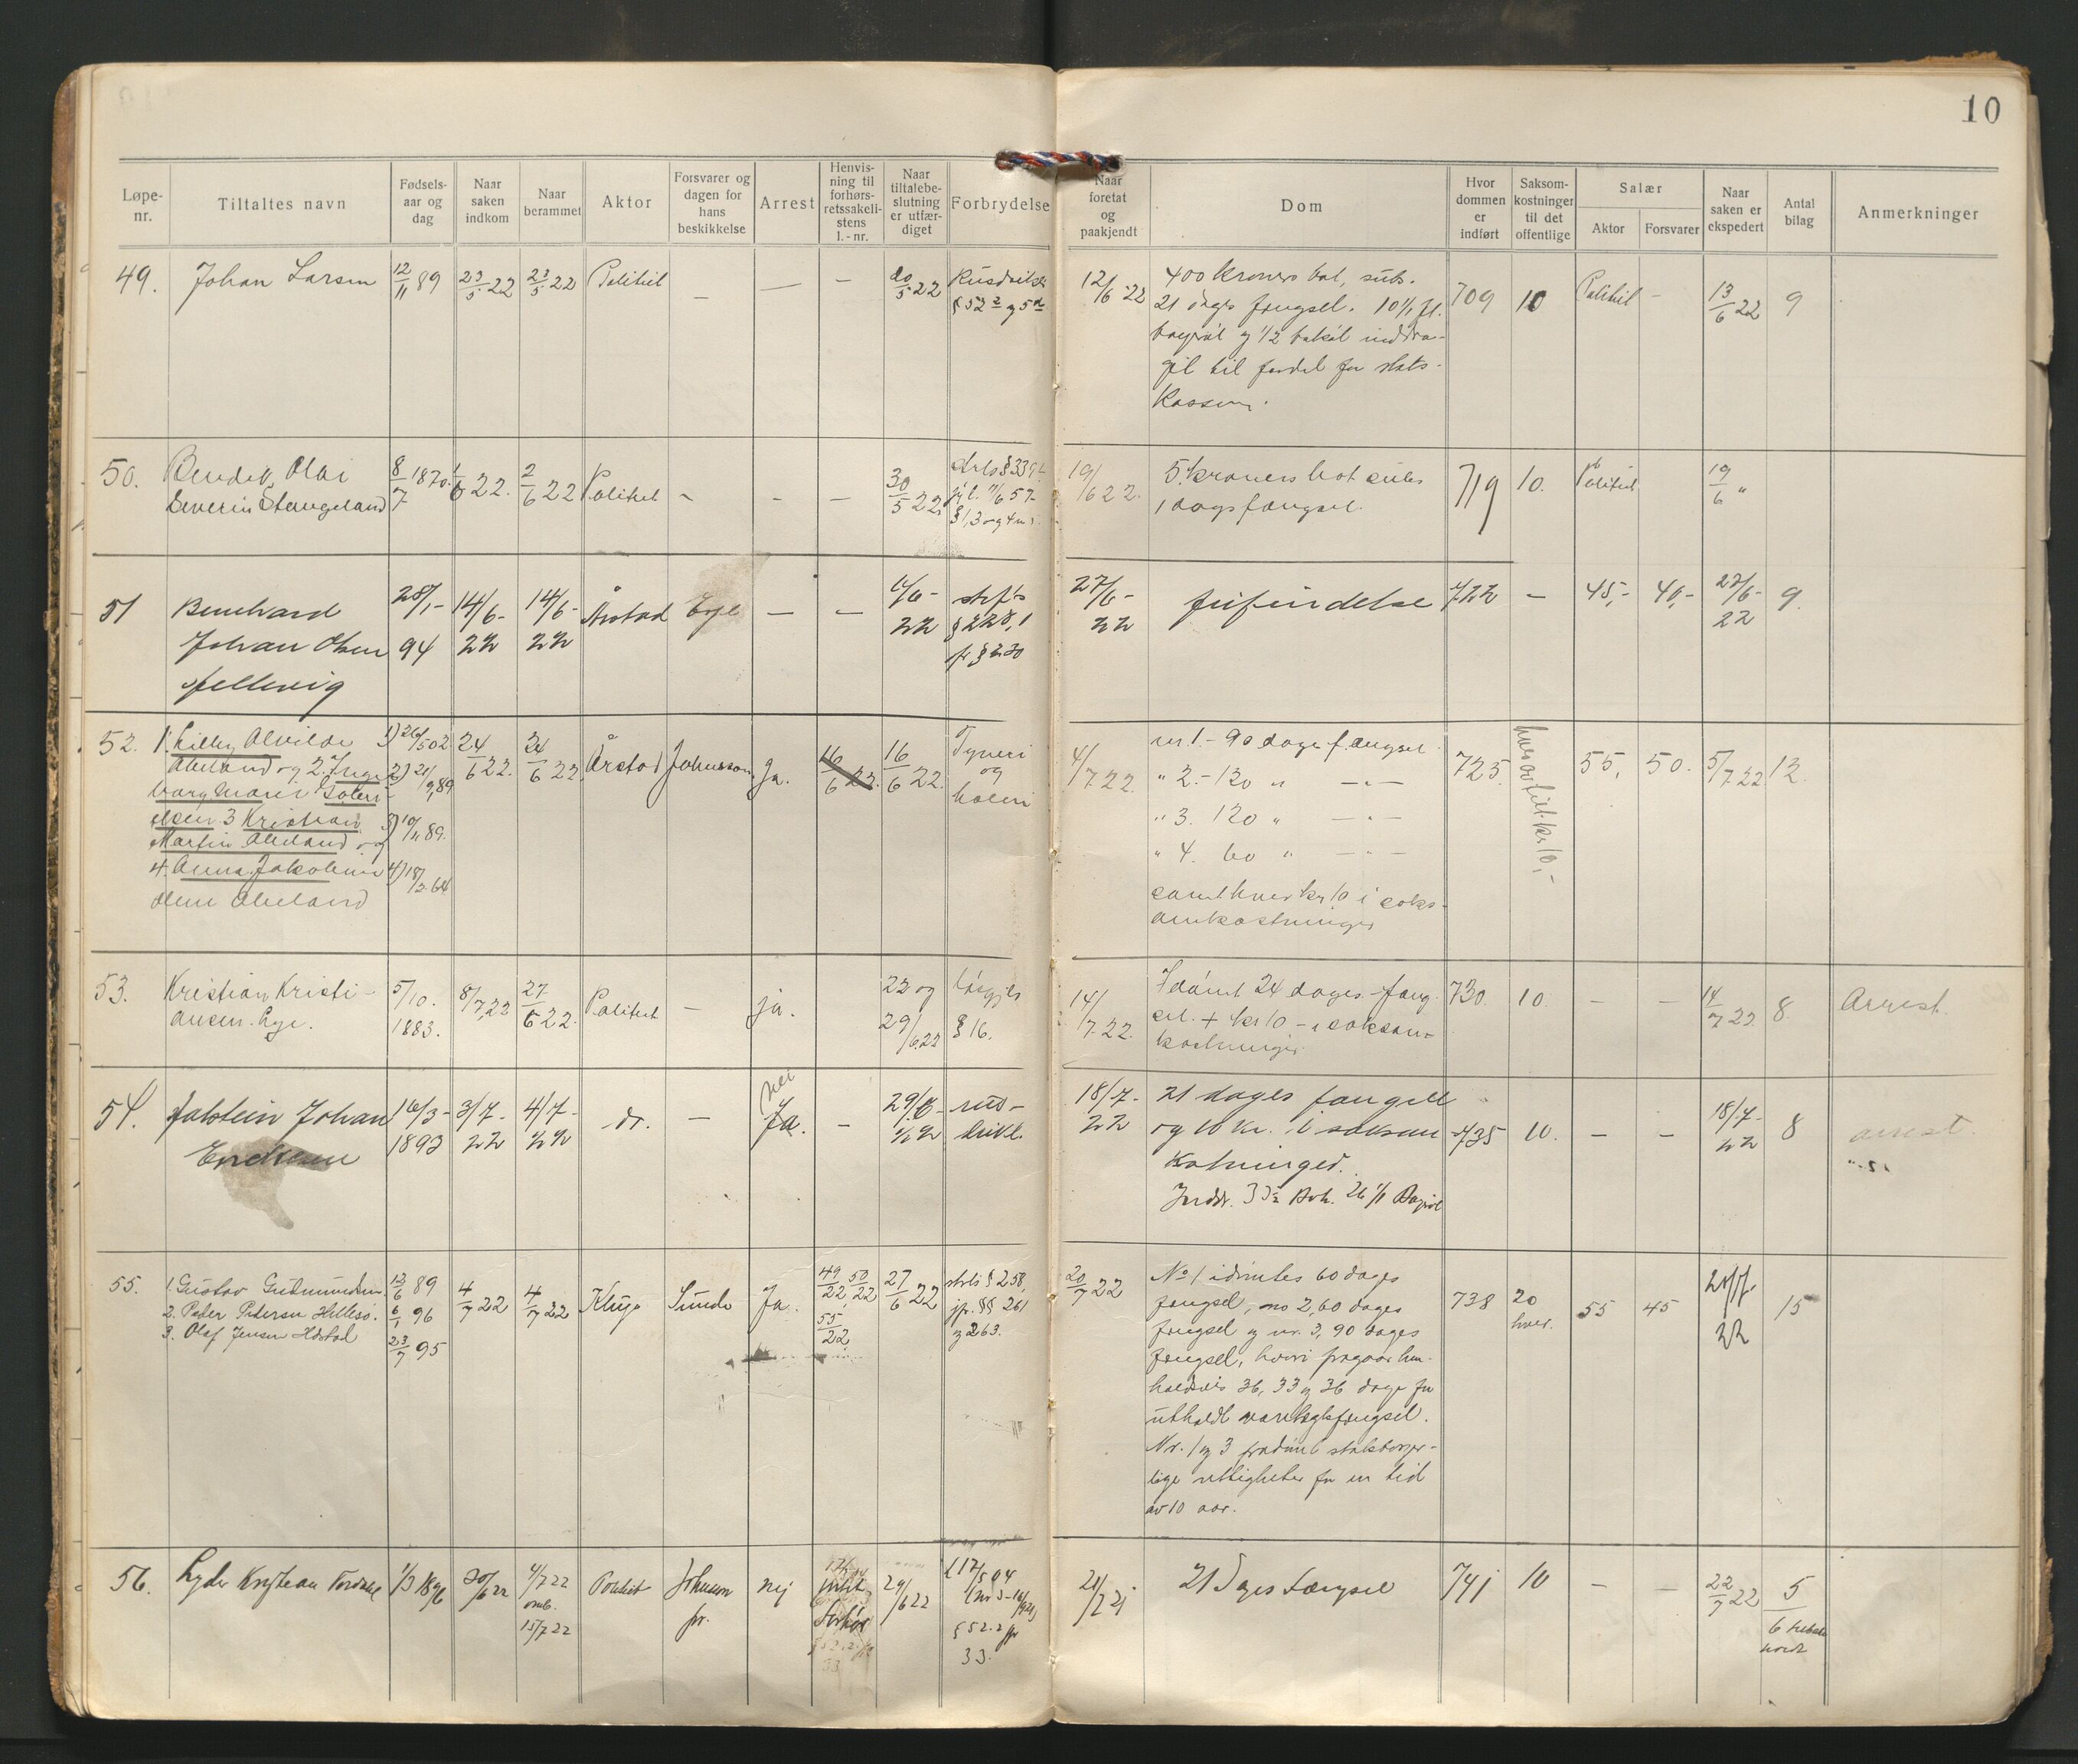 10
Løpe-nr.
Tiltaltes navn
Fødsels-aar og dag
Naar saken indkom
Naar berammet
Aktor
Forsvarer og dagen for hans beskikkelse
Arrest
Henvis-ning til forhørs-retssakeli-stens l.-nr.
Naar tiltalebe-slutning er utfær-diget
Forbrydelse
Naar foretat og paakjendt
Dom
Hvor dommen er indført
Saksom-kostninger til det offentlige
Salær
Aktor
Forsvarer
Naar saken er ekspedert
Antal bilag
Anmerkninger
49.
Johan Larsen
12/11 89
23/5 22
23/5 22
Politiet
–
—
–
20/5 22
12/6 22
400 kroners bot, subs.
21 dages fængsel. 10 1/1 fl.
til fordel for stats-
kassen.
709
10
Politiet
–
13/6 22
9
50.
Olai
Severin Stangeland
8/7 1870.
1/6 22.
2/6 22
Politiet
–
–
–
30/5 22
19/6 22.
5 kroners bot subs
1 dags fængsel.
719
10.
Politiet
19/6 "
51
Bernhard
Johan Olsen
28/1-94
14/6-22
14/6-22
Årstad
—
—
§ 228, 1
27/6-22
frifindelse
722
–
45,-
40,-
27/6-22
9.
52.
Abeland og 2. Inge
borg Marie
Olsen 3 Kristian
Martin Abeland og
4. Anna Jakobine
Olsen Abeland
2) 21/9 89
4) 18/2 64
24/6 22.
24/6 22
Årstad
Johnsson
Ja.
16/6 22.
16/6 22.
Tyveri
og
heleri
4/7 22.
nr. 1. – 90 dage fængsel
" 2. – 120 " — " —
" 3. 120 " — " —
" 4. 60 " — " —
samt hver kr 10 i saks-
omkostninger
725.
hver av tilt. kr 10,-
55,
50.
5/7 22
12.
53.
Kristian Kristi-
ansen Lye.
5/10.
1883.
8/7 22
27/6 22.
Politiet
–
ja.
22 og
29/6 22
løsgjl.
§ 16.
14/7 22.
Idømt 24 dages fæng-
sel. + kr 10 – i saksom-
kostninger
730.
10.
–
–
14/7 22
8.
Arrest.
54.
Johan
Eriksen
16/3-
1893
3/7-22
4/7-22
do.
–
nei
Ja.
–
29/6-22
18/7-22
21 dages fængsel
og 10 kr. i saksom
kostninger.
735
10.
–
–
18/7-22
8
arrest
55.
1. Gustav Gudmundsen
2. Peder Pedersen
3. Olaf Jensen
12/6 89
6/1 96
23/7 95
4/7 22
4/7 22
Kluge
Sunde
Ja.
49/22, 50/22
55/22
27/6 22
strls § 258,
jfr. §§ 261
og 263.
20/7 22
No 1 idømtes 60 dages
fængsel, no 2, 60 dages
fængsel og nr. 3, 90 dages
fængsel, hvori fragaar hen-
holdsvis 36, 33 og 36 dage for
utholdt varetægtsfængsel.
Nr. 1 og 3 fradømt statsborger-
lige rettigheter for en tid
av 10 aar.
738
20
hver.
55
45
15
56.
1/3 1896
30/6 22
4/7 22
omb.
15/7 22
Politiet
Johnson
fr.
nej
29/6 22
§ 52.2 jfr
33.
21 Dages Fængsel
741
10
–
–
22/7 22
5